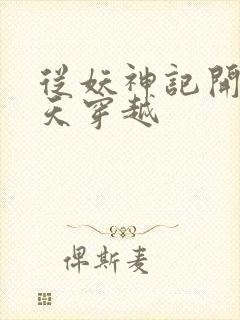 從妖神記開
天穿越
俾斯麦